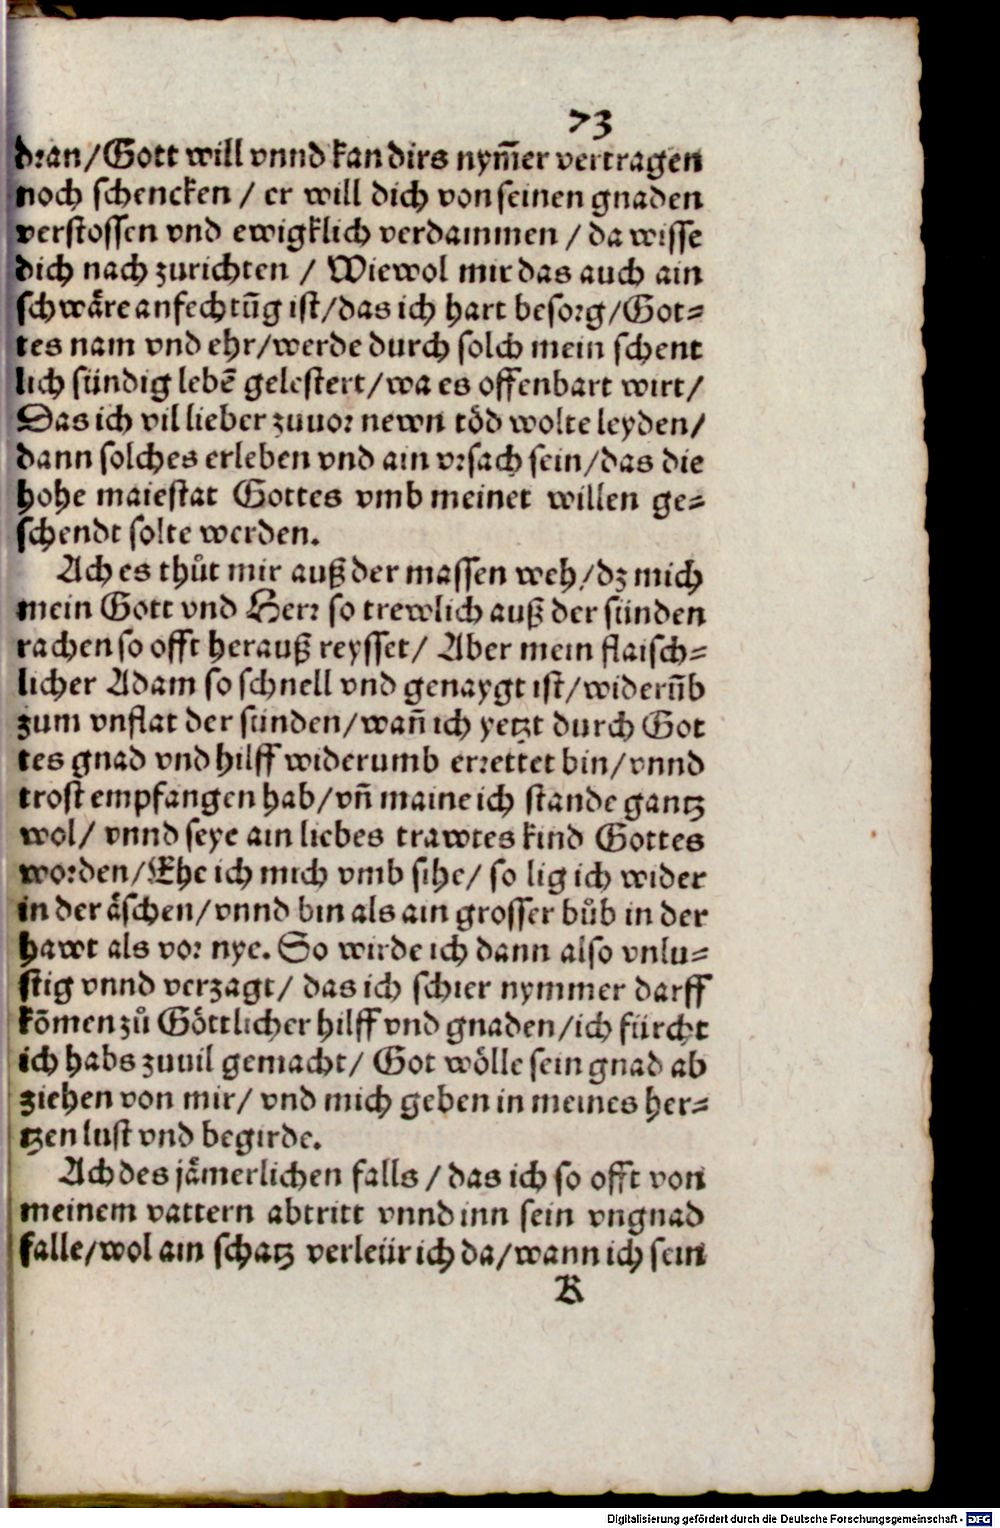 73
dran/Gott will vnnd kan dirs nym̃er vertragen
noch schencken / er will dich von seinen gnaden
verstossen vnd ewigklich verdammen / da wisse
dich nach zurichten / Wiewol mir das auch ain
schwäre anfechtũg ist/das ich hart besorg/Got⸗
tes nam vnd ehr/werde durch solch mein schent
lich sündig lebẽ gelestert/wa es offenbart wirt/
Das ich vil lieber zuuor newn töd wolte leyden/
dann solches erleben vnd ain vrsach sein/das die
hohe maiestat Gottes vmb meinet willen ge⸗
schendt solte werden.
Ach es thůt mir auß der massen weh/dz mich
mein Gott vnd Herr so trewlich auß der sünden
rachen so offt herauß reysset/ Aber mein flaisch⸗
licher Adam so schnell vnd genaygt ist/widerũb
zum vnflat der sünden/wañ ich yetzt durch Got
tes gnad vnd hilff widerumb errettet bin/vnnd
trost empfangen hab/vñ maine ich stande gantz
wol/ vnnd seye ain liebes trawtes kind Gottes
worden/Ehe ich mich vmb sihe/ so lig ich wider
in der äschen/vnnd bin als ain grosser bůb in der
hawt als vor nye. So wirde ich dann also vnlu⸗
stig vnnd verzagt/ das ich schier nymmer darff
kõmen zů Göttlicher hilff vnd gnaden/ich fürcht
ich habs zuuil gemacht/ Got wölle sein gnad ab
ziehen von mir/ vnd mich geben in meines her⸗
tzen lust vnd begirde.
Ach des jämerlichen falls / das ich so offt von
meinem vattern abtritt vnnd inn sein vngnad
falle/wol ain schatz verleür ich da/wann ich sein
K
Digitalisierung gefördert durch die Deutsche Forschungsgemeinschaft - DFG